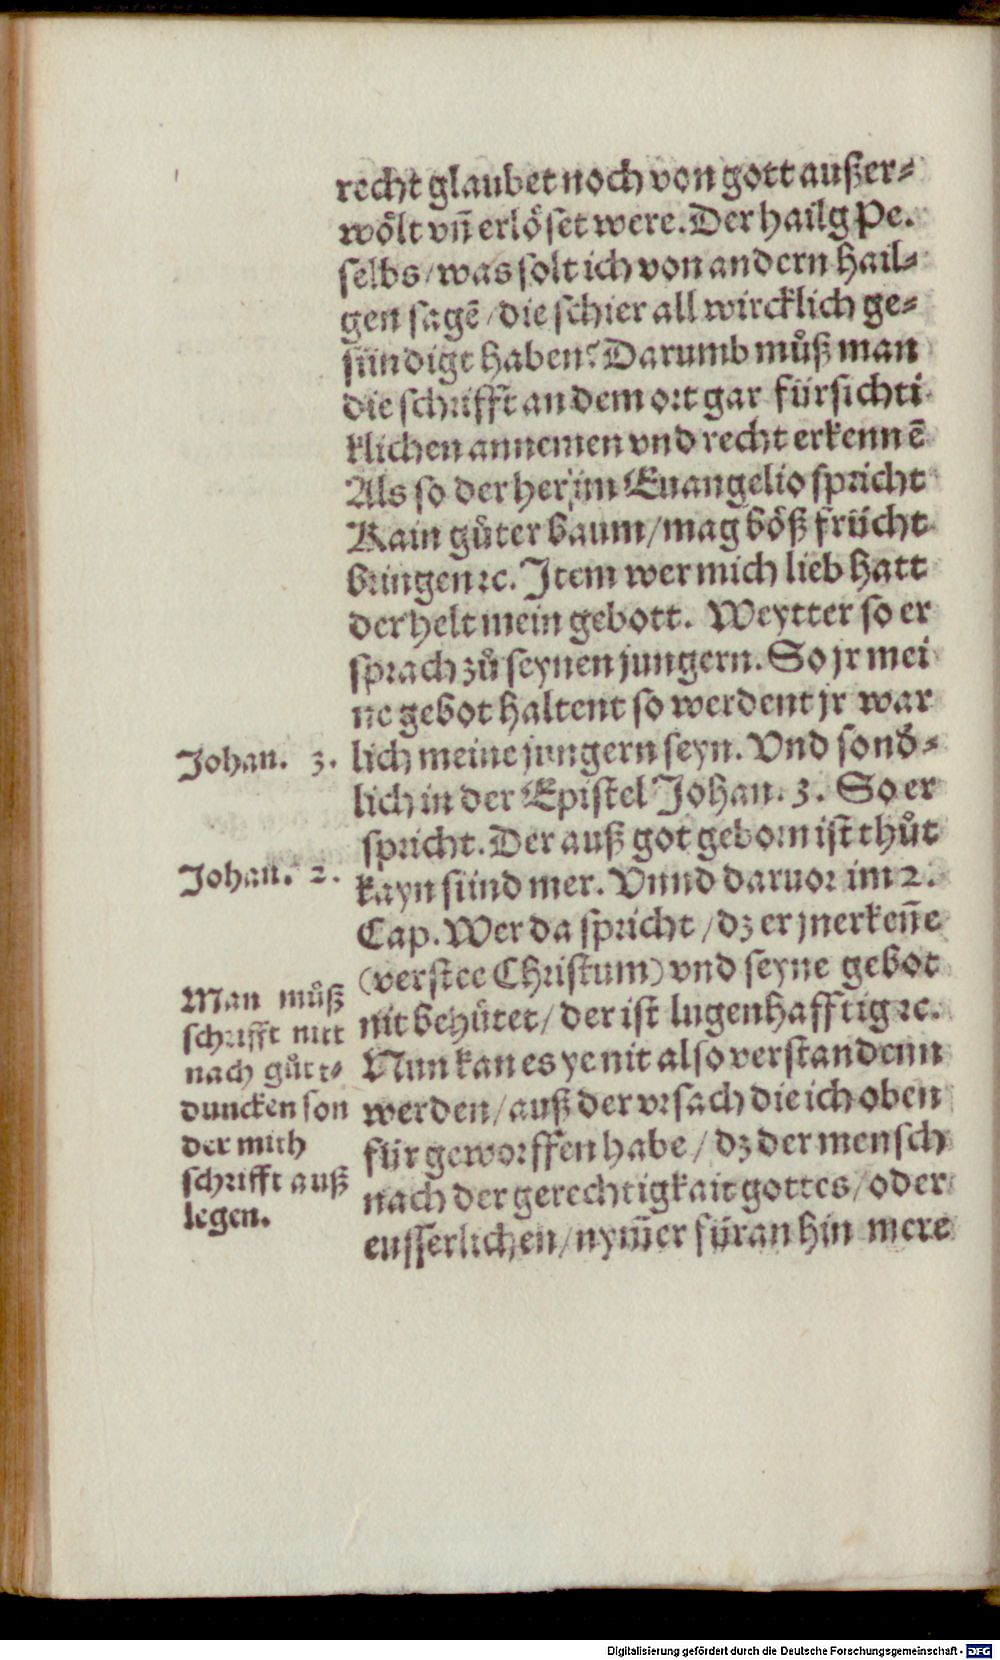 recht glaubet noch von gott außer⸗
wölt vn̄ erlöset were. Der hailg Pe.
selbs / was solt ich von andern hail⸗
gen sagē / die schier all wircklich ge⸗
sündigt haben? Darumb můß man
die schrifft an dem ort gar fürsichti
klichen annemen vnd recht erkennē
Als so der her im Euangelio spricht
Kain gůter baum / mag böß frücht
bringen ꝛc. Item wer mich lieb hatt
der helt mein gebott. Weytter so er
sprach zů seynen jungern. So jr mei
ne gebot haltent so werdent jr war
lich meine jungern seyn. Vnd sond⸗
lich in der Epistel Johan. 3. So er
spricht. Der auß got geborn ist thůt
kayn sünd mer. Vnnd daruor im 2.
Cap. Wer da spricht / dz er jn erken̄e
(verstee Christum) vnd seyne gebot
nit behütet / der ist lugenhafftig ꝛc.
Nun kan es ye nit also verstandenn
werden / auß der vrsach die ich oben
für geworffen habe / dz der mensch
nach der gerechtigkait gottes / oder
eusserlichen / nym̄er füran hin mere
Johan. 3.
Johan. 2.
Man můß
schrifft nitt
nach gůtt⸗
duncken son
der mith
schrifft auß
legen.
Digitalisierung gefördert durch die Deutsche Forschungsgemeinschaft - DFG